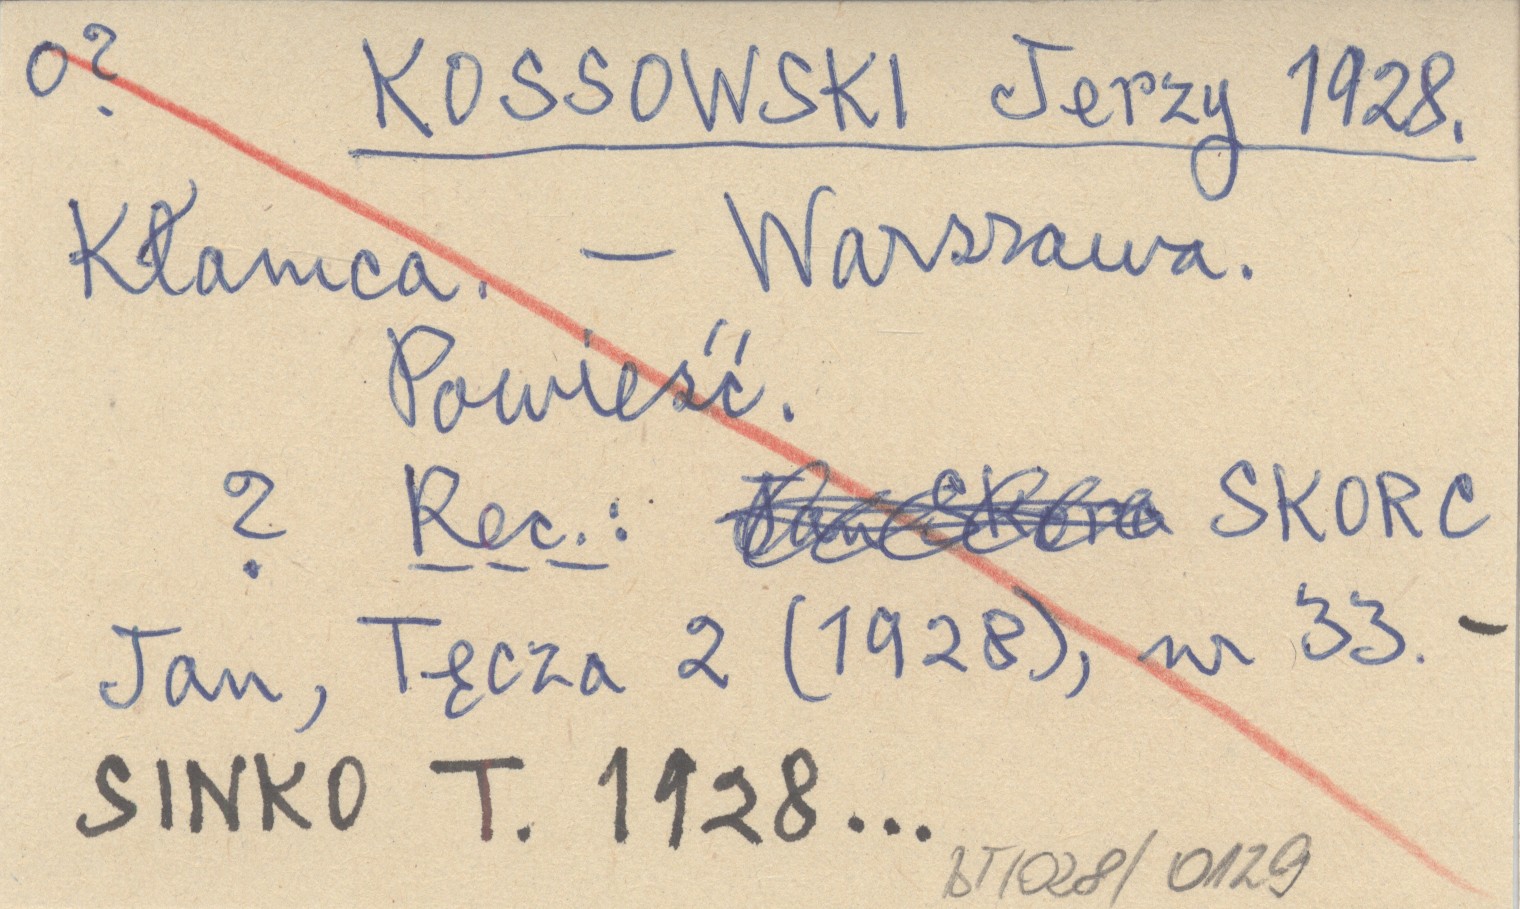 o? KOSSOWSKI Jerzy 1928.
Kłamca. — Warszawa.
Powieść.
? Rec.: SKORC
Jan, Tęcza 2 (1928), nr 33. –
SINKO T. 1928...
0129